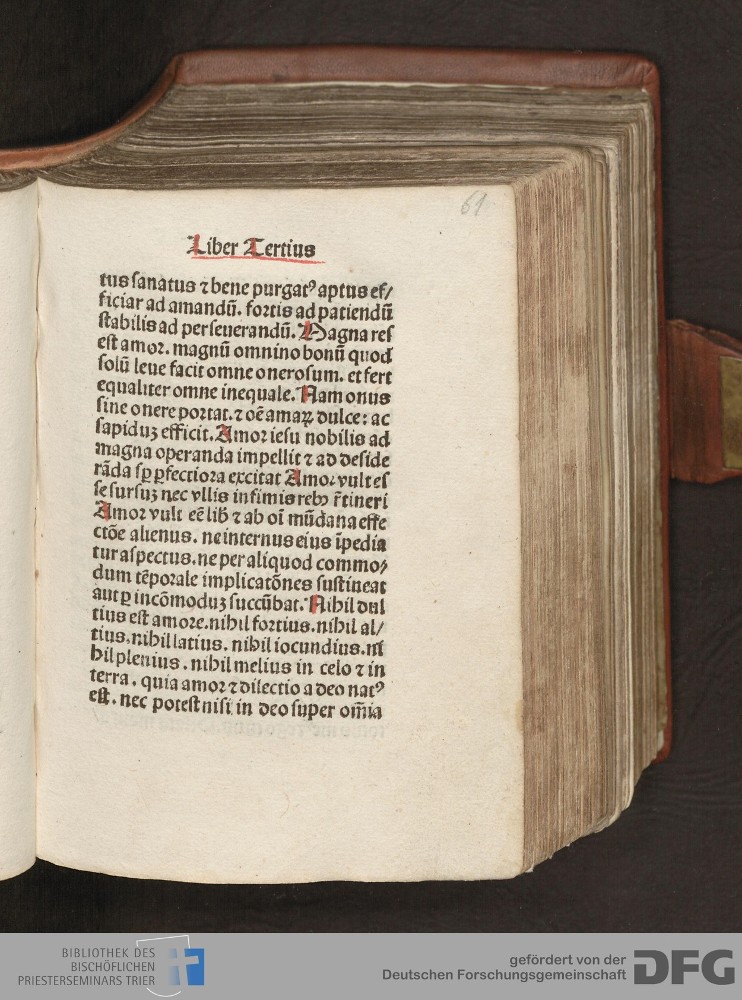 61
Liber Tertius
tus sanatus ⁊ bene purgatꝰ aptus ef/
ficiar ad amandū. fortis ad patiendū
stabilis ad perseuerandū. Magna res
est amor. magnū omnino bonū quod
solū leue facit omne onerosum. et fert
equaliter omne inequale. Nam onus
sine onere portat. ⁊ oē amaꝝ dulce: ac
sapiduꝫ efficit. Amor iesu nobilis ad
magna operanda impellit ⁊ ad deside
rāda sꝑ ꝑfectiora excitat Amor vult es
se sursuꝫ nec vllis infimis rebꝰ r̄tineri
Amor vult eē lib̄ ⁊ ab oī mūdana effe
ctōe alienus. ne internus eius īpedia
tur aspectus. ne per aliquod commo/
dum tēporale implicatōnes sustineat
aut ꝑ incōmoduꝫ succūbat. Nihil dul
tius est amore. nihil fortius. nihil al/
tius. nihil latius. nihil iocundius. ni
hil plenius. nihil melius in celo ⁊ in
terra. quia amor ⁊ dilectio a deo natꝰ
est. nec potest nisi in deo super om̄ia
BIBLIOTHEK DES
BISCHÖFLICHEN
PRIESTERSEMINARS TRIER
gefördert von der
Deutschen Forschungsgemeinschaft
DFG